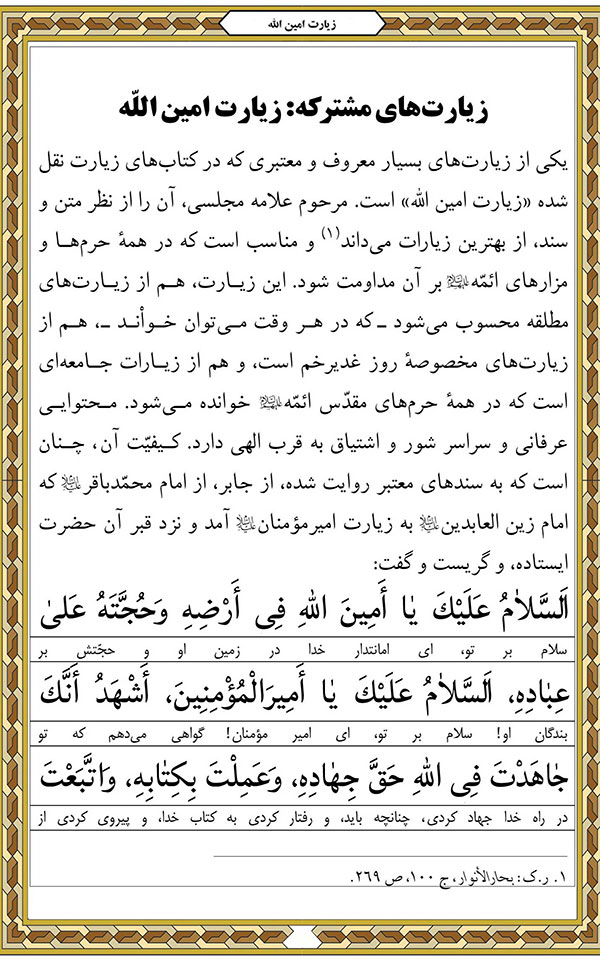 زیارت امین الله
زیارت‌های مشترکه: زیارت امین اللّه
یکی از زیارت‌های بسیار معروف و معتبری که در کتاب‌های زیارت نقل
شده «زیارت امین الله» است. مرحوم علامه مجلسی، آن را از نظر متن و
سند، از بهترین زیارات می‌داند(۱) و مناسب است که در همهٔ حرم‌هـا و
مزارهای ائمّه بر آن مداومت شود. این زیـارت، هـم از زیـارت‌های
مطلقه محسوب می‌شود ـ که در هـر وقت مـی‌توان خـوانْـد ـ، هـم از
زیارت‌های مخصوصهٔ روز غدیرخم است، و هم از زیـارات جـامعه‌ای
است که در همهٔ حرم‌های مقدّس ائمّه خوانده مـی‌شود. مـحتوایـی
عرفانی و سراسر شور و اشتیاق به قرب الهی دارد. کـیفیّت آن، چـنان
است که به سندهای معتبر روایت شده، از جابر، از امام محمّدباقر که
امام زین العابدین به زیارت امیرمؤمنان آمد و نزد قبر آن حضرت
ایستاده، و گریست و گفت:
اَلسَّلاٰمُ عَلَیْكَ یٰا أَمِینَ اللهِ فِی أَرْضِهِ وَحُجَّتَهُ عَلیٰ
سلام بر تو، ای امانتدار خدا در زمین او و حجّتش بر
عِبٰادِهِ، اَلسَّلاٰمُ عَلَیْكَ یٰا أَمِیرَالْمُؤْمِنِینَ، أَشْهَدُ أَنَّكَ
بندگان او! سلام بر تو، ای امیر مؤمنان! گواهی می‌دهم که تو
جٰاهَدْتَ فِی اللهِ حَقَّ جِهٰادِهِ، وَعَمِلْتَ بِکِتٰابِهِ، وَاتَّبَعْتَ
در راه خدا جهاد کردی، چنانچه باید، و رفتار کردی به کتاب خدا، و پیروی کردی از
۱. ر.ک: بحارالأنوار، ج ۱۰۰، ص ۲۶۹.